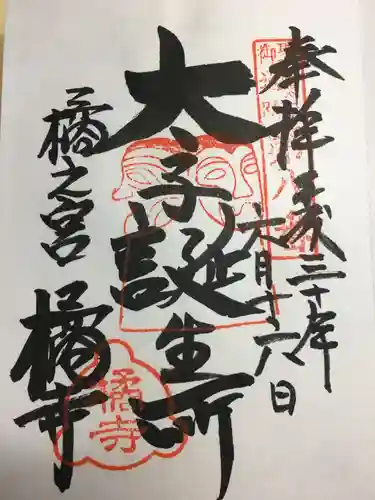 奉拝
平成三十年
六月十六日
太子誕生所
橘之宮
橘寺
橘寺